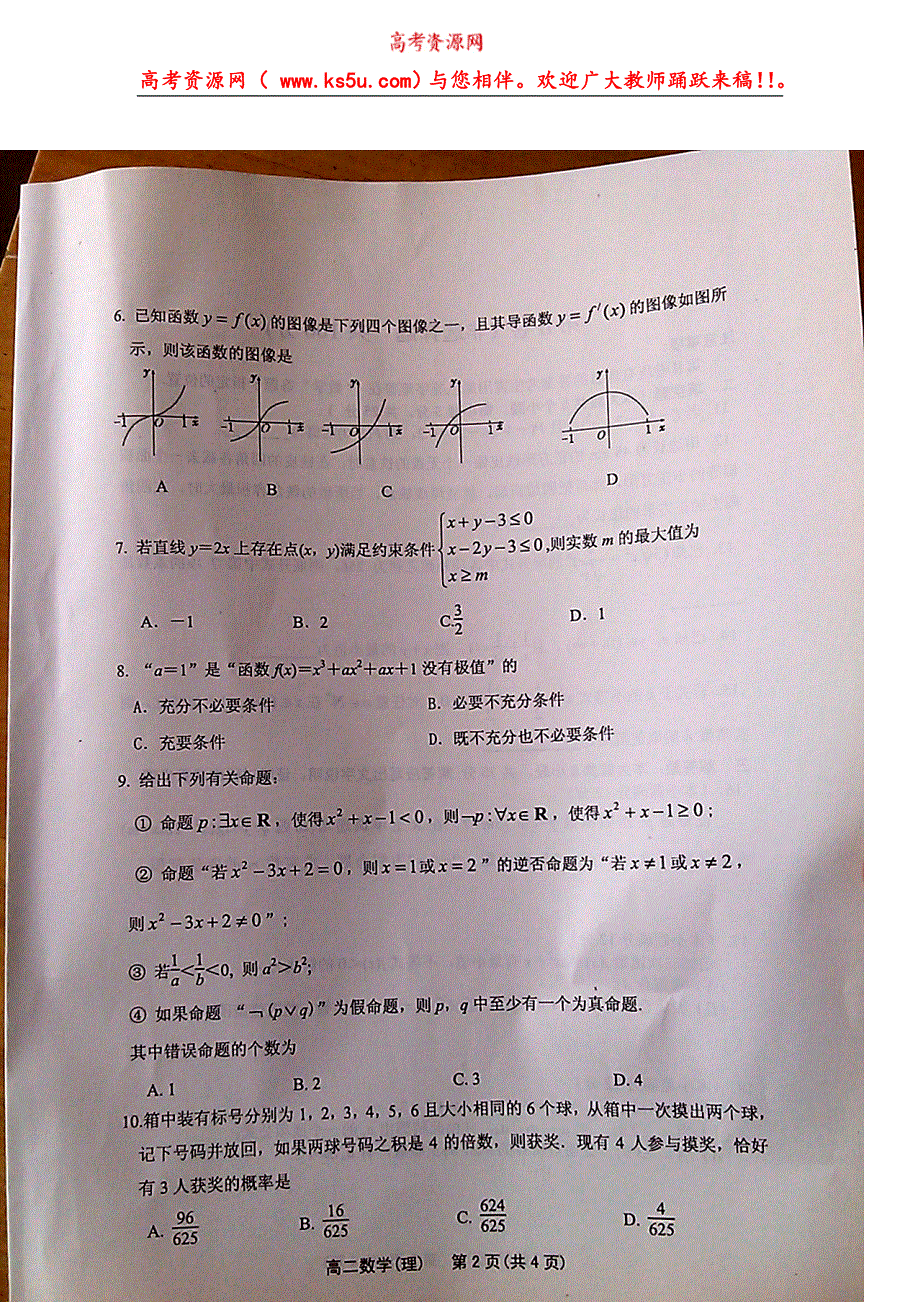 高考资源网
高考资源网( www.ks5u.com)与您相伴。欢迎广大教师踊跃来稿!!。
6. 已知函数 y = f(x) 的图像是下列四个图像之一，且其导函数 y = f′(x) 的图像如图所
示，则该函数的图像是
y y y y y
-1 O 1 x -1 O 1 x -1 O 1 x -1 O 1 x -1 O 1 x
A B C D
7. 若直线 y＝2x 上存在点(x，y)满足约束条件 { x+y-3≤0
x-2y-3≤0 ,则实数 m 的最大值为
x≥m
A．－1 B．2 C. 3/2 D．1
8. “a＝1”是“函数 f(x)＝x³＋ax²＋ax＋1 没有极值”的
A．充分不必要条件 B．必要不充分条件
C．充要条件 D．既不充分也不必要条件
9. 给出下列有关命题：
① 命题 p:∃x∈R，使得 x²+x-1<0，则¬p:∀x∈R，使得 x²+x-1≥0；
② 命题“若 x²-3x+2=0，则 x=1或 x=2”的逆否命题为“若 x≠1或 x≠2，
则 x²-3x+2≠0”；
③ 若 1/a<1/b<0, 则 a²>b²;
④ 如果命题 “¬(p∨q)”为假命题，则 p，q 中至少有一个为真命题.
其中错误命题的个数为
A. 1 B. 2 C. 3 D. 4
10.箱中装有标号分别为 1，2，3，4，5，6 且大小相同的 6 个球，从箱中一次摸出两个球，
记下号码并放回，如果两球号码之积是 4 的倍数，则获奖．现有 4 人参与摸奖，恰好
有 3 人获奖的概率是
A. 96/625 B. 16/625 C. 624/625 D. 4/625
高二数学(理) 第 2 页(共 4 页)